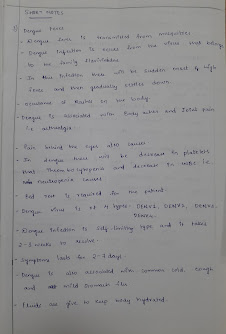 SHORT NOTES
Dengue Fever
- Dengue fever is transmitted from mosquitoes
- Dengue Infection is occurs from the virus that belongs
to the family flaviviridae
- In this infection there will be sudden onset of high
fever and then gradually settles down
- occurance of Rashes on the body.
- Dengue is associated with Body aches and Joint pain
i.e arthralgia.
- Pain behind the eyes also causes
- In dengue there will be decrease in platelets
thrombocytopenia and decrease in WBC i.e.
neutropenia causes
- Bed rest is required for the patient.
- Dengue virus is of 4 types - DENV1, DENV2, DENV3,
DENV4.
- Dengue Infection is self limiting type and it takes
2-3 weeks to resolve.
- Symptoms lasts for 2-7 days.
- Dengue is also associated with common cold, cough
and mild stomach
- Fluids are give to keep body hydrated.